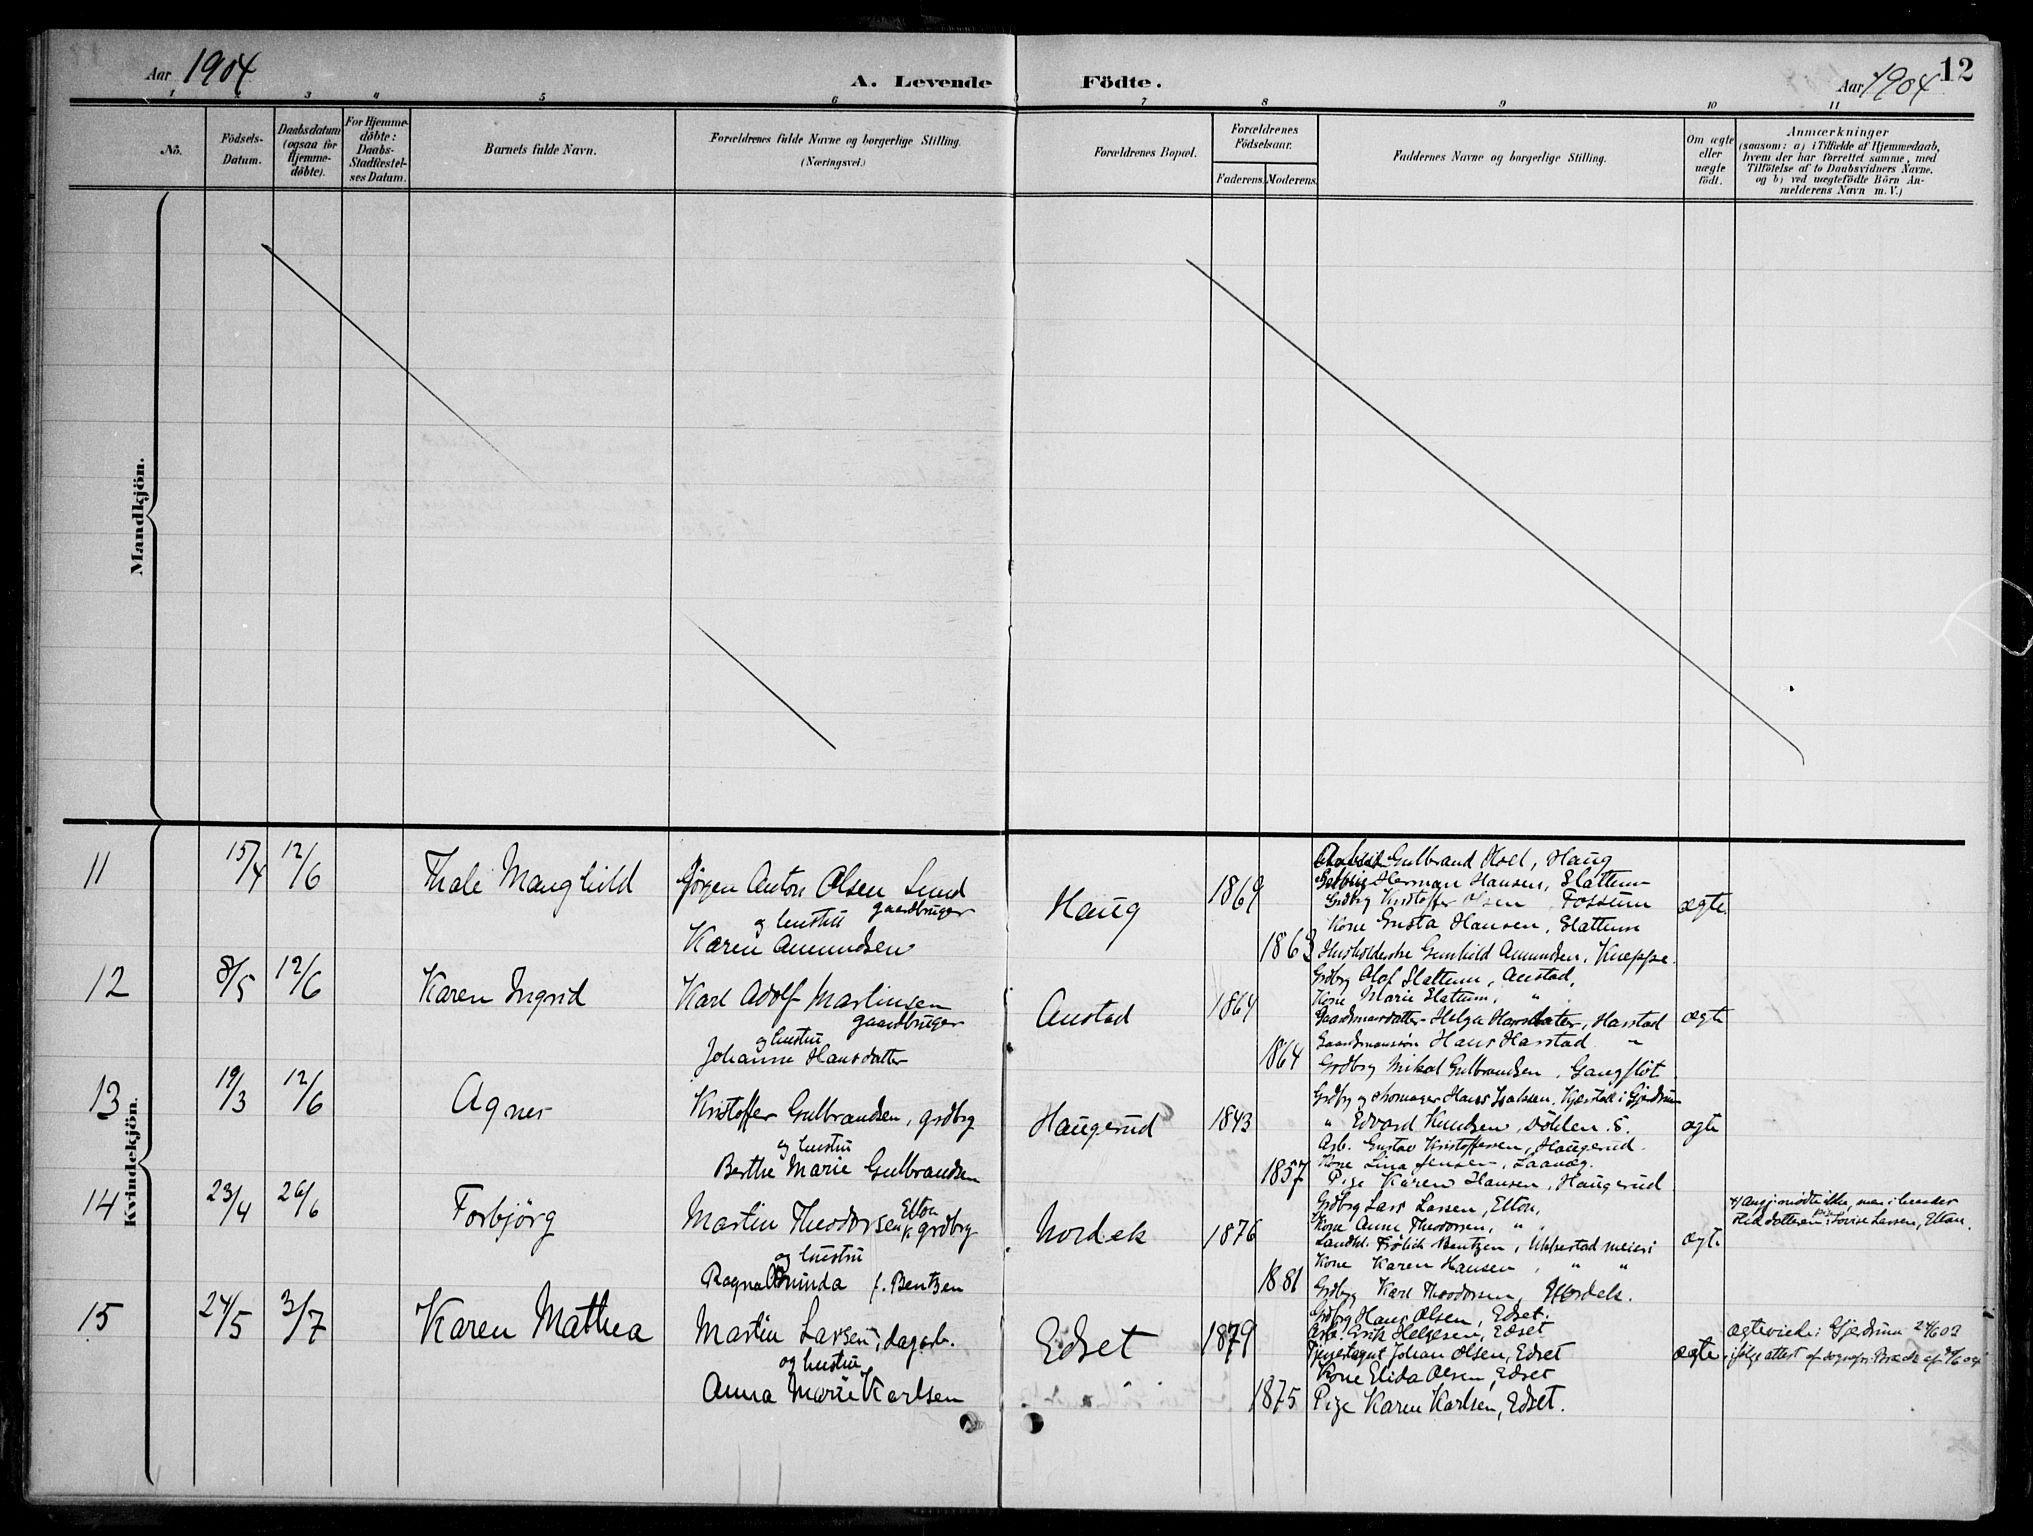 Aar 1904
A. Levende Födte.
Aar 1904
12
1 2 3 4 5 6 7 8 9 10 11
Nô.
Födsels-
Datum.
Daabsdatum
(ogsaa för
Hjemme-
döbte).
For Hjemme-
döbte:
Daabs-
Stadfæstel-
ses Datum.
Barnets fulde Navn.
Forældrenes fulde Navne og borgerlige Stilling.
(Næringsvei.)
Forældrenes Bopæl.
Forældrenes
Födselsaar.
Faderens.
Moderens.
Faddernes Navne og borgerlige Stilling.
Om ægte
eller
uægte
födt.
Anmærkninger
(saasom: a) i Tilfælde af Hjemmedaab,
hvem der har forrettet samme, med
Tilföielse af to Daabsvidners Navne.
og b) ved uægtefödte Börn An-
melderens Navn m. V.)
Mandkjön.
Kvindekjön.
11
15/4
12/6
Thale Manghild
Jörgen Anton Olsen Lund
gaardbruger
og hustru
Karen Amundsen
Haug
1869
1863
Gulbrand Olsel, Haug
Herman Hansen, Slattum
Grdbrg Kristoffer Olsen, Fossum
Kone Gusta Hansen, Slattum
Gunhild Amundsen, Kneppe.
ægte
12
8/5
12/6
Karen Ingrid
Karl Adolf Martinsen
gaardbruger
og hustru
Johanne Hansdatter
Austad
1864
1864
Grdbrg Olof Slattum, Austad,
Kone Marie Slattum, "
Gaardmansdatter Helga Harstad
Gaardmanssön Hans Harstad "
Grdbrg Mikal Gulbrandsen, Gangflöt.
ægte
13
19/3
12/6
Agnes
Kristoffer Gulbrandsen, grdbrg
og hustru
Berthe Marie Gulbrandsen
Haugerud
1843
1857
Grdbrg og skomager Hans Isaksen, Kjærstad i Gjerdrum
" Edvard Knudsen, Dölden. S.
Arb. Gustav Kristoffersen, Haugerud.
Kone Lina Jensen, Laaneg.
Pige Karen Hansen, Haugerud
ægte
14
23/4
26/6
Torbjörg
Martin Theodorsen Elton
grdbrg
og hustru
Ragna f. Bentzen
Nordek
1876
1881
Grdbrg Lars Larsen, Elton,
Kone Anne Theodorsen, " "
Frölich Bentzen, Ukkestad meieri
Kone Karen Hansen, " "
Grdbrg Karl Theodorsen, Nordek.
ægte
Lovise Larsen, Elton.
15
24/5
3/7
Karen Mathea
Martin Larsen, dagarb.
og hustru
Anna Marie Karlsen
Edset
1879
1875
Grdbrg Hans Olsen, Edset.
Arb. Erik Helgesen, Edset
Johan Olsen, Edset
Kone Elida Olsen, Edset
Pige Karen Karlsen, Edset.
ægte
ægteviede i Gjerdrum
ifölge attest af